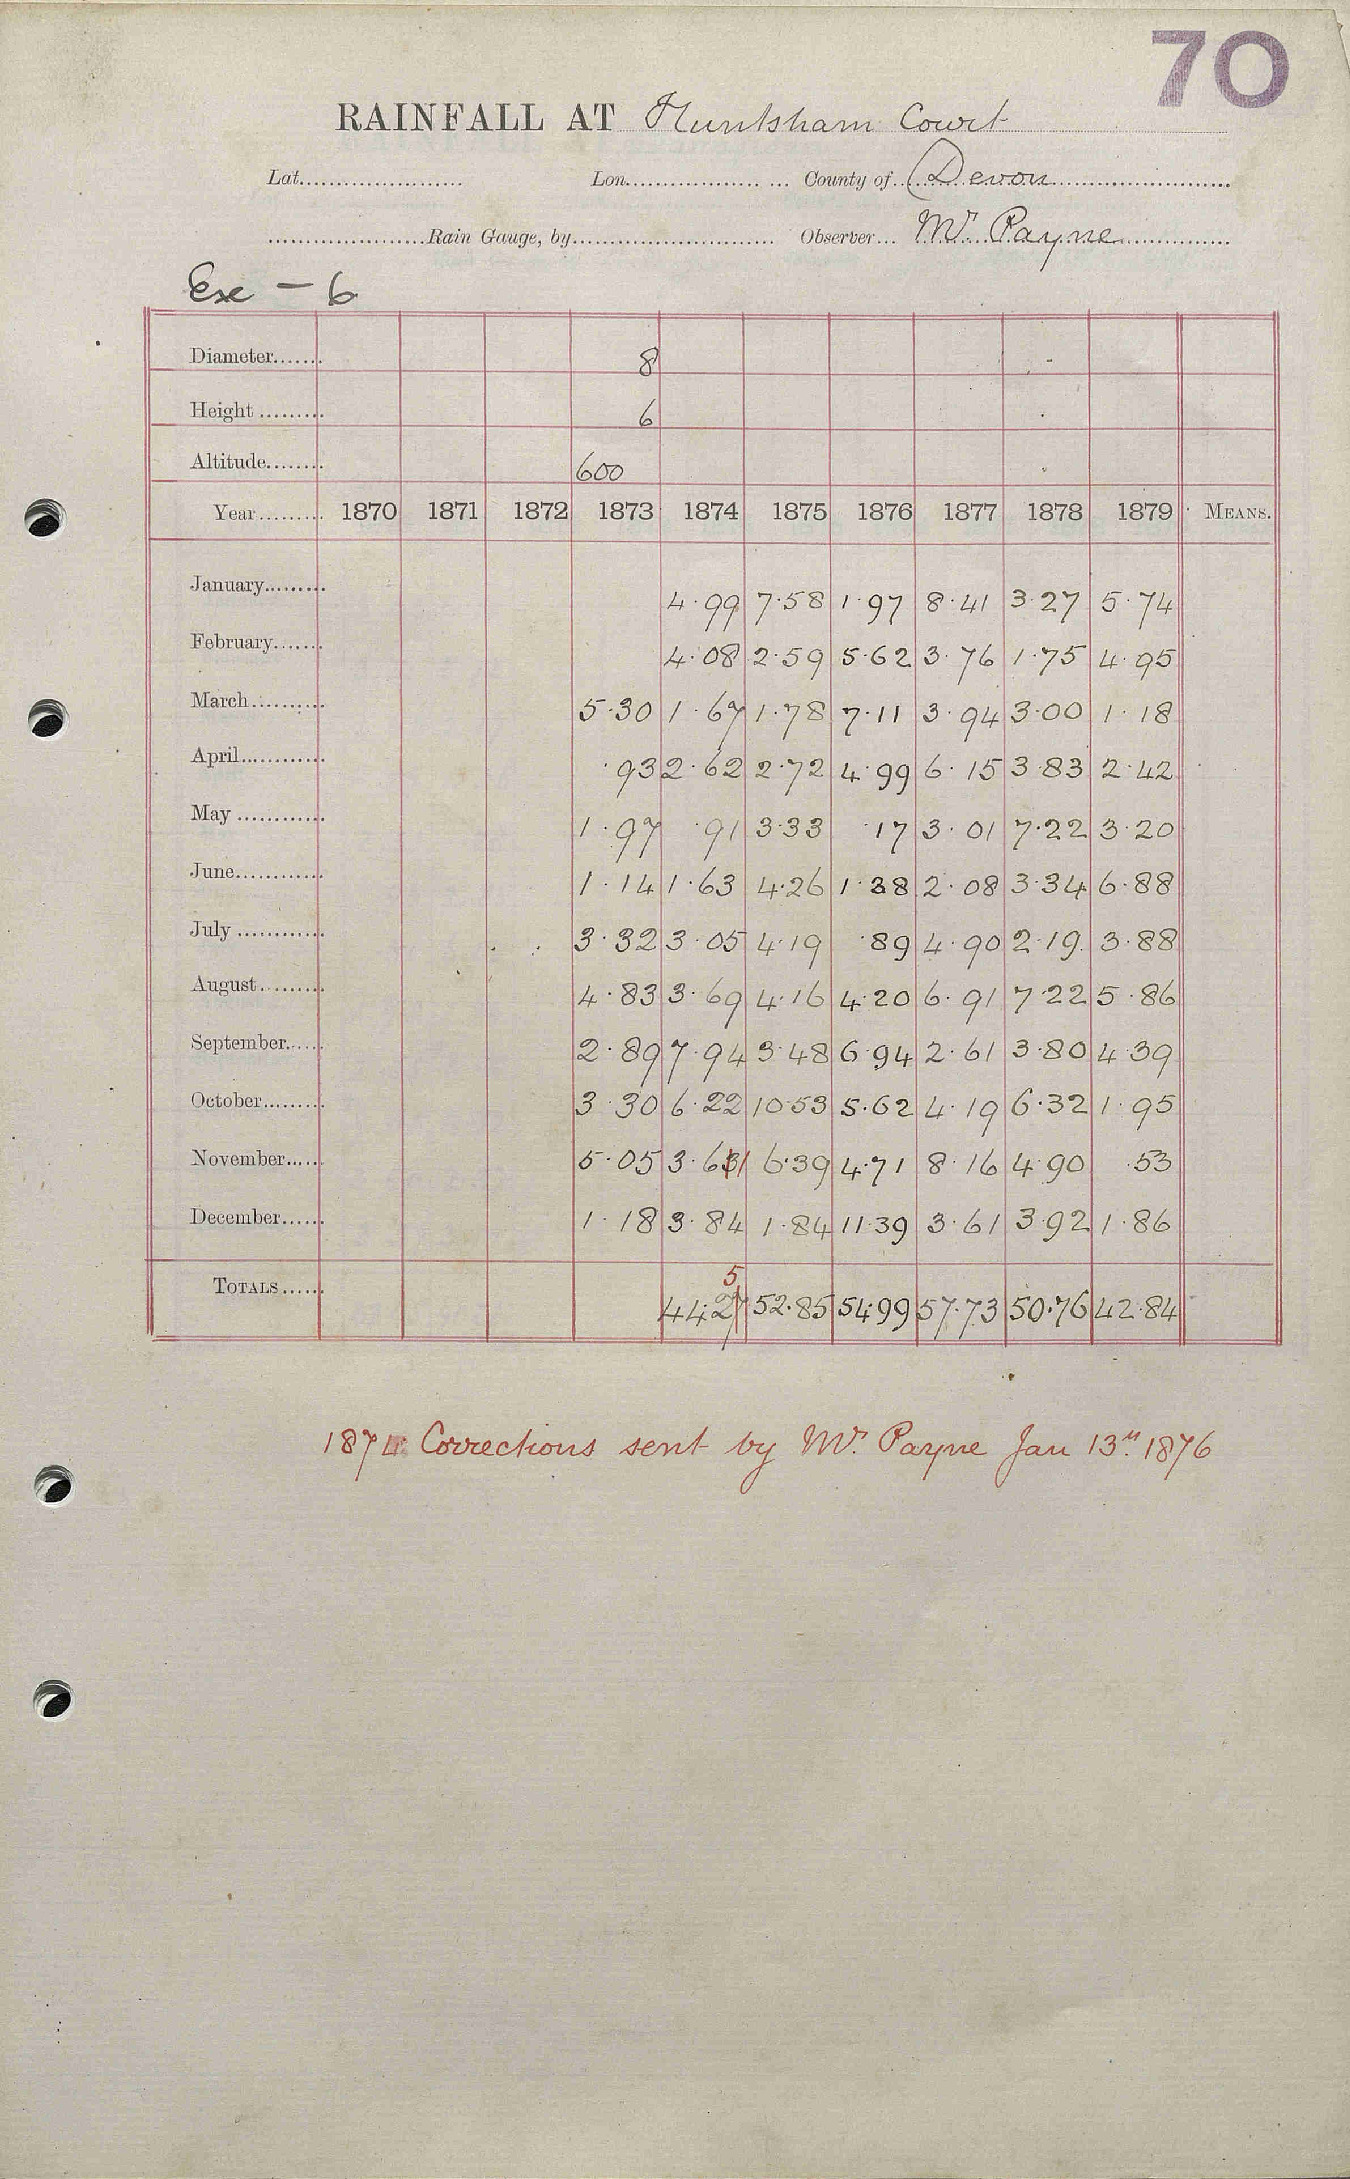 70
RAINFALL AT Huntsham Court
Lat. Lon. County of Devon
Rain Gauge, by Observer Mr Payne
Exe - 6
Diameter 8
Height 6
Altitude 600
Year 1870 1871 1872 1873 1874 1875 1876 1877 1878 1879 MEANS.
January 4.99 7.58 1.97 8.41 3.27 5.74
February 4.08 2.59 5.62 3.76 1.75 4.95
March 5.30 1.67 1.78 7.11 3.94 3.00 1.18
April .93 2.62 2.72 4.99 6.15 3.83 2.42
May 1.97 .91 3.33 .17 3.01 7.22 3.20
June 1.14 1.63 4.26 1.38 2.08 3.34 6.88
July 3.32 3.05 4.19 .89 4.90 2.19 3.88
August 4.83 3.69 4.16 4.20 6.91 7.22 5.86
September 2.89 7.94 3.48 6.94 2.61 3.80 4.39
October 3.30 6.22 10.53 5.62 4.19 6.32 1.95
November 5.05 3.631 6.39 4.71 8.16 4.90 .53
December 1.18 3.84 1.84 11.39 3.61 3.92 1.86
5
TOTALS 44.27 52.85 54.99 57.73 50.76 42.84
1874 Corrections sent by Mr. Payne Jan 13th 1876